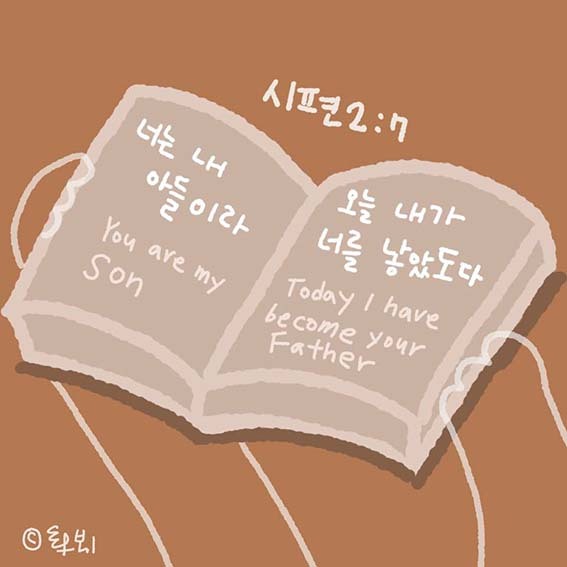 시편2:7
너는 내
아들이라
You are my
Son
오늘 내가
너를 낳았도다
Today I have
become your
Father